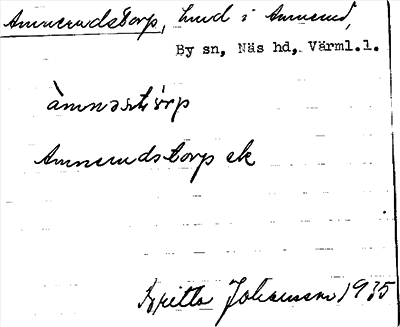 Amnerudstorp, hmd i Amnerud,
By sn, Näs hd, Värml.l.
àmnəstórp
Amnerudstorp ek
Britta Johansson 1935